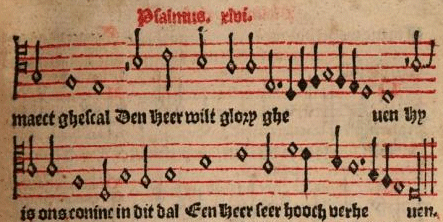 Psalmus. xlvi.
maect ghescal Den heer wilt glory ghe uen hy
is ons coninc in dit dal Een heer seer hooch verhe uen.